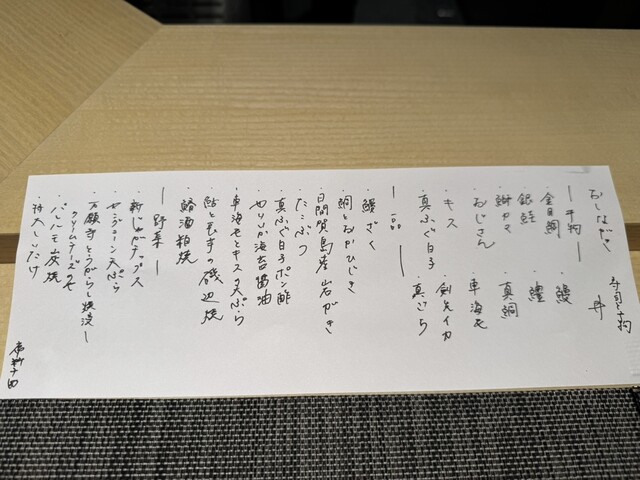 おしながき
寿司と干物
丼
ー干物ー
・金目鯛 ・鰻
・銀鮭 ・鱧
・鰤カマ ・真鯛
・おじさん ・車海老
・キス ・剣先イカ
・真ふぐ白子 ・真さわら
ー 一品 ー
・鰻ざく
・鯛とおかひじき
・日間賀島産岩がき
・たこぶつ
・真ふぐ白子ポン酢
・やりいか海苔醤油
・車海老とキス天ぷら
・鮎と長芋の磯辺焼
・鰆酒粕焼
ー野菜ー
・新じゃがチップス
・ヤングコーン天ぷら
・万願寺とうがらし焼浸し
・クリームチーズ
・バルサミコ炭焼
・特大しいたけ